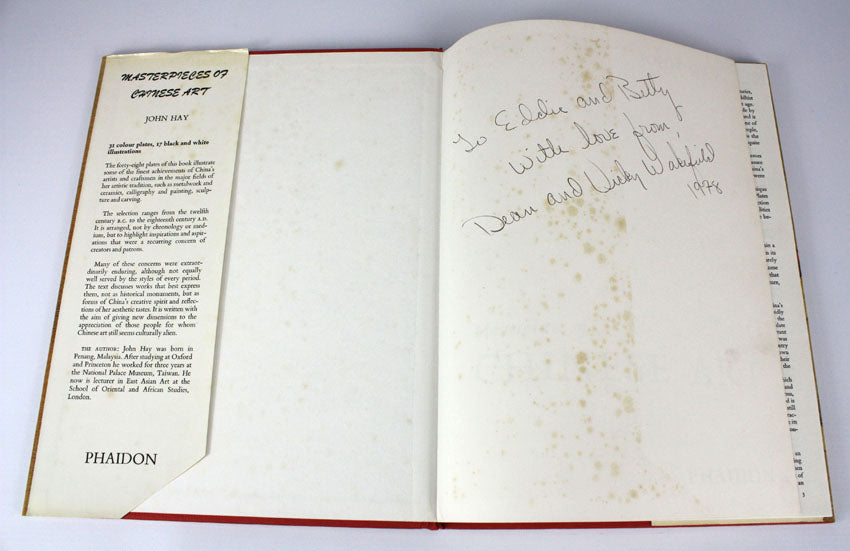 MASTERPIECES OF
CHINESE ART
JOHN HAY
32 colour plates, 17 black and white
illustrations
The forty-eight plates of this book illustrate
some of the finest achievements of China's
artists and craftsmen in the major fields of
her artistic tradition, such as metalwork and
ceramics, calligraphy and painting, sculp-
ture and carving.
The selection ranges from the twelfth
century B.C. to the eighteenth century A.D.
It is arranged, not by chronology or med-
ium, but to highlight inspirations and aspir-
ations that were a recurring concern of
creators and patrons.
Many of these concerns were extraor-
dinarily enduring, although not equally
well served by the styles of every period.
The text discusses works that best express
them, not as historical monuments, but as
forms of China's creative spirit and reflec-
tions of her aesthetic tastes. It is written with
the aim of giving new dimensions to the
appreciation of those people for whom
Chinese art still seems culturally alien.
THE AUTHOR: John Hay was born in
Penang, Malaysia. After studying at Oxford
and Princeton he worked for three years at
the National Palace Museum, Taiwan. He
now is lecturer in East Asian Art at the
School of Oriental and African Studies,
London.
PHAIDON
To Eddie and Betty
With love from,
Dean and Vicky Wakefield
1978